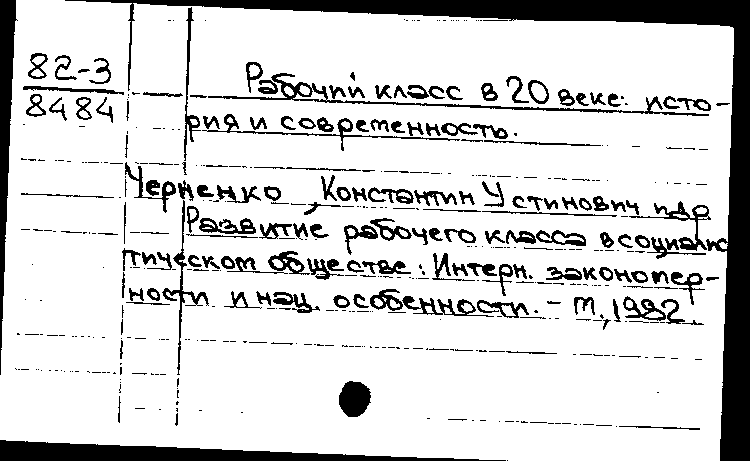 82-3
8484
Рабочий класс в 20 веке: исто-
рия и современность.
Черненко, Константин Устинович и др
Развитие рабочего класса в социалис
тическом обществе: Интерн. законопер-
ности и нац. особенности. - М., 1982.